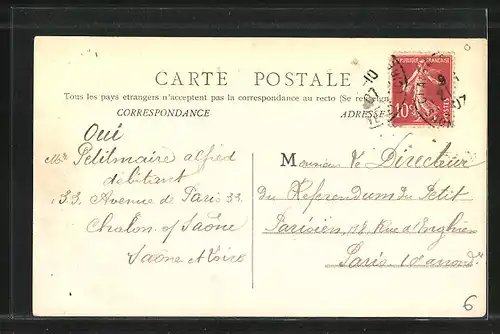 CARTE POSTALE
Tous les pays étrangers n'acceptent pas la correspondance au recto (Se renseign
CORRESPONDANCE
ADRESSE
REPUBLIQUE FRANÇAISE
10c
POSTES
10
07
07
Oui
Mr Petitmaire alfred
débitant
33 Avenue de Paris 33
Chalon s/ Saône
Saône et Loire
Monsieur le Directeur
du Referendum du Petit
Parisien, 18, Rue d'Enghien
Paris 10e arrondt
6